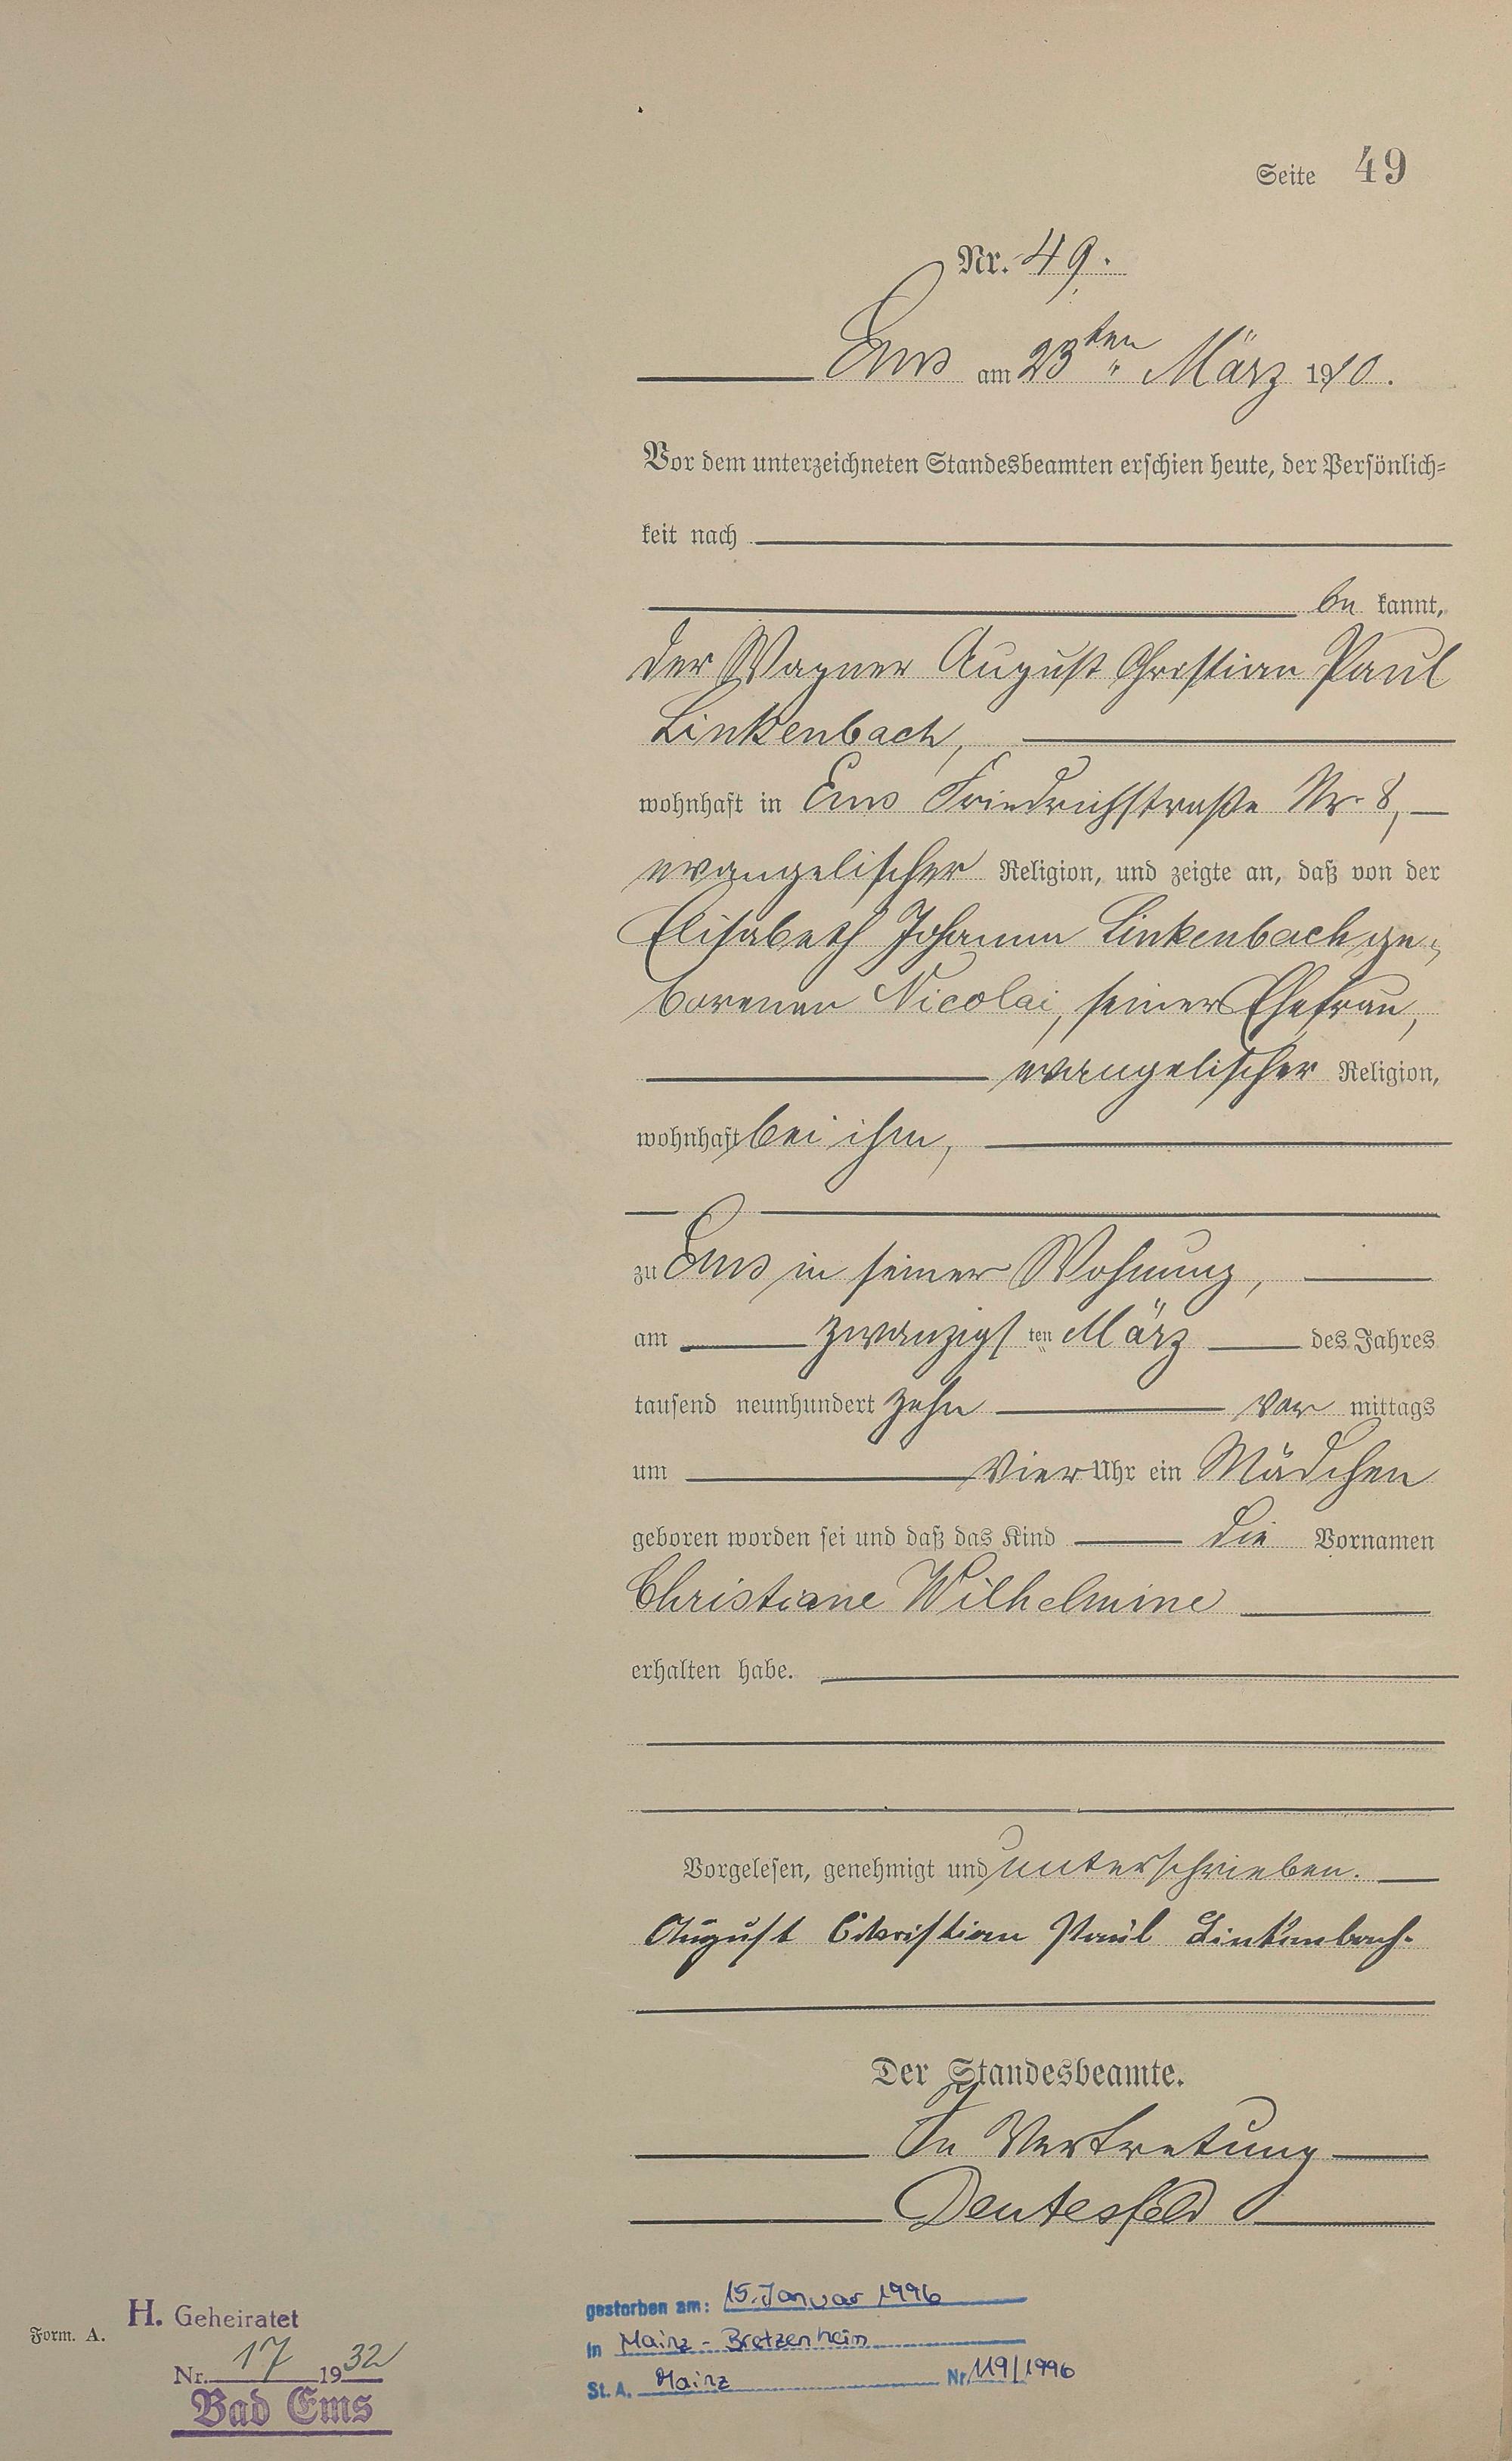 Seite 49
Nr. 49.
Ems am 23ten März 1910.
Vor dem unterzeichneten Standesbeamten erschien heute, der Persönlich-
keit nach
be kannt,
der Wagner August Christian Paul
Linkenbach,
wohnhaft in Ems Friedrichstraße Nr. 8,
evangelischer Religion, und zeigte an, daß von der
Elisabeth Johanna Linkenbach ge-
borenen Nicolai, seiner Ehefrau,
evangelischer Religion,
wohnhaft bei ihm,
zu Ems in seiner Wohnung,
am zwanzigsten März des Jahres
tausend neunhundert zehn vor mittags
um vier Uhr ein Mädchen
geboren worden sei und daß das Kind die Vornamen
Christiane Wilhelmine
erhalten habe.
Vorgelesen, genehmigt und unterschrieben.
August Christian Paul Linkenbach.
Der Standesbeamte.
In Vertretung
Deutesfeld
gestorben am: 15. Januar 1996
in Mainz - Bretzenheim
St. A. Mainz Nr. 119/1996
Form. A.
H. Geheiratet
Nr. 17 1932
Bad Ems